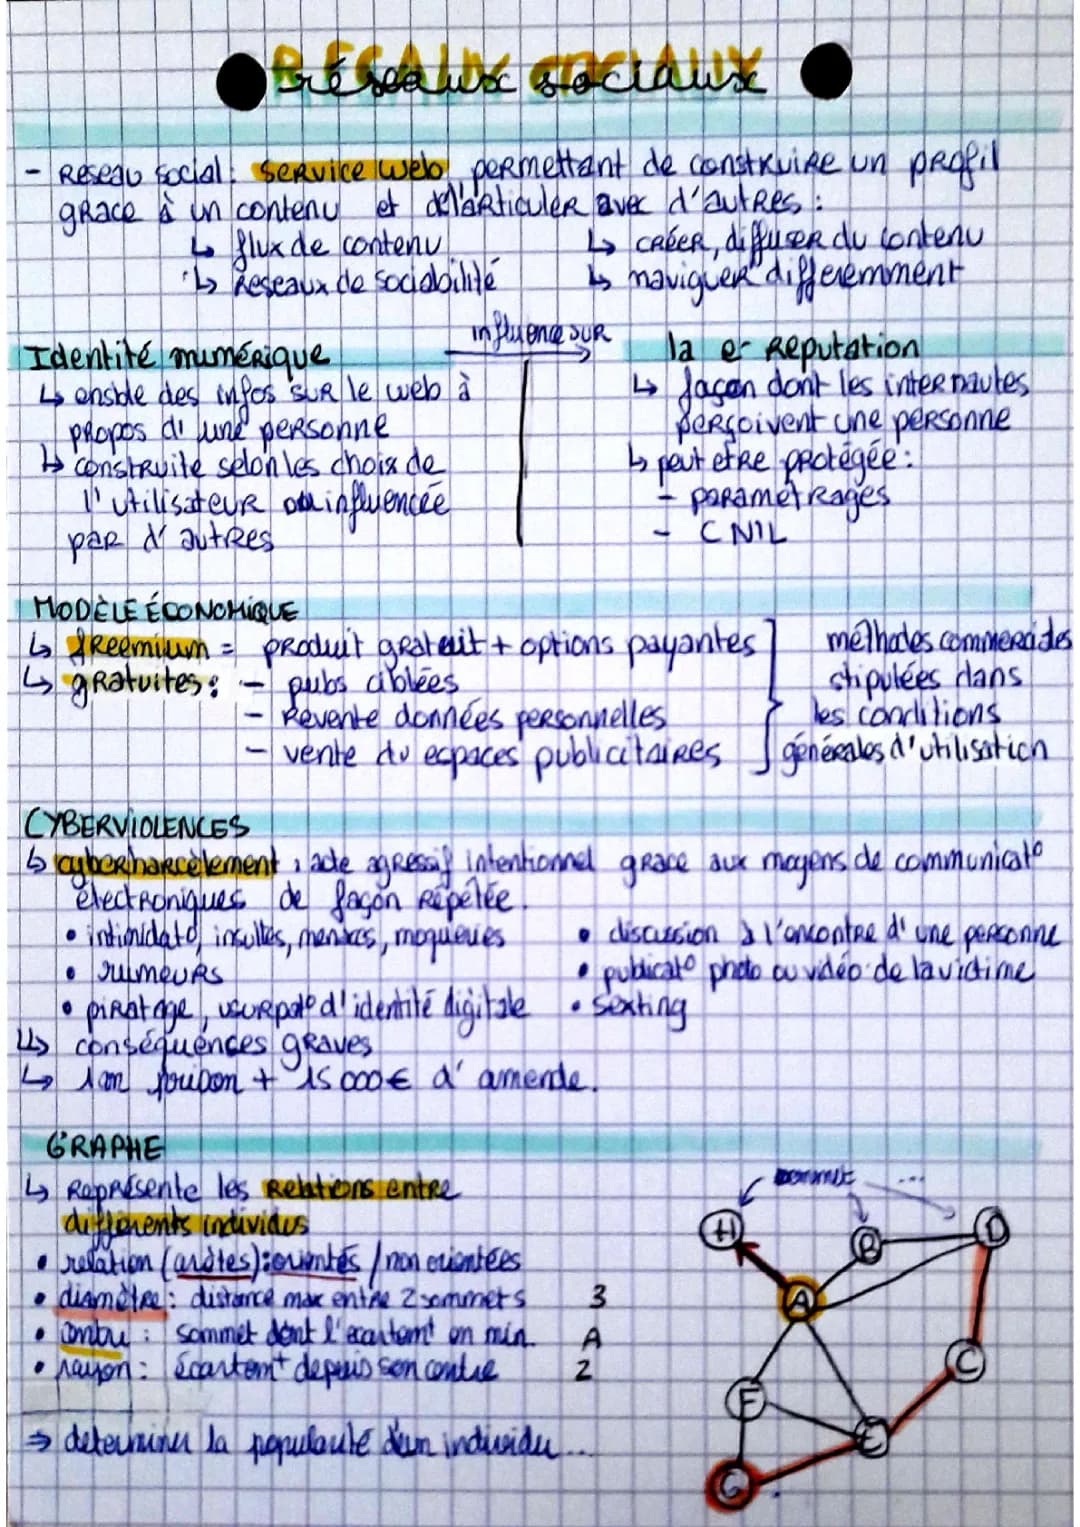 RESEAUX SOCIAUX
réseaux sociaux
- Reseau social: service web permettant de construire un profil
grace à un contenu et de l'articuler avec d'autres :
↳ flux de contenu
↳ Reseaux de sociabilité
↳ créer, diffuser du contenu
↳ naviguer differemment
Identité numérique
influence sur
la e-Reputation
↳ ensble des infos sur le web à
propos d'une personne
↳ construite selon les choix de
l'utilisateur ou influencée
par d'autres
↳ façon dont les internautes
perçoivent une personne
↳ peut etre protégée :
- paramétrages
- CNIL
MODÈLE ÉCONOMIQUE
↳ freemium = produit gratuit + options payantes
↳ gratuites : - pubs ciblées
- Revente données personnelles
- vente du espaces publicitaires
méthodes commerciales
stipulées dans
les conditions
générales d'utilisation
CYBERVIOLENCES
↳ cyberharcèlement : acte agressif intentionnel grace aux moyens de communicat°
électroniques de façon répétée.
• intimidat°, insultes, menaces, moqueries
• rumeurs
• piratage, usurpat° d'identité digitale
• discussion à l'encontre d'une personne
• publicat° photo ou vidéo de la victime
• sexting
↳ conséquences graves
↳ 1 an prison + 15 000€ d'amende.
GRAPHE
↳ Représente les Relations entre
différents individus
• relation (arêtes) : orientés / non orientées
• diamètre : distance max entre 2 sommets 3
• centre : sommet dont l'écartemt en min. A
• rayon : écartemt depuis son centre 2
→ determiner la popularité d'un individu...
sommet ...
H
B
D
A
C
F
E
G